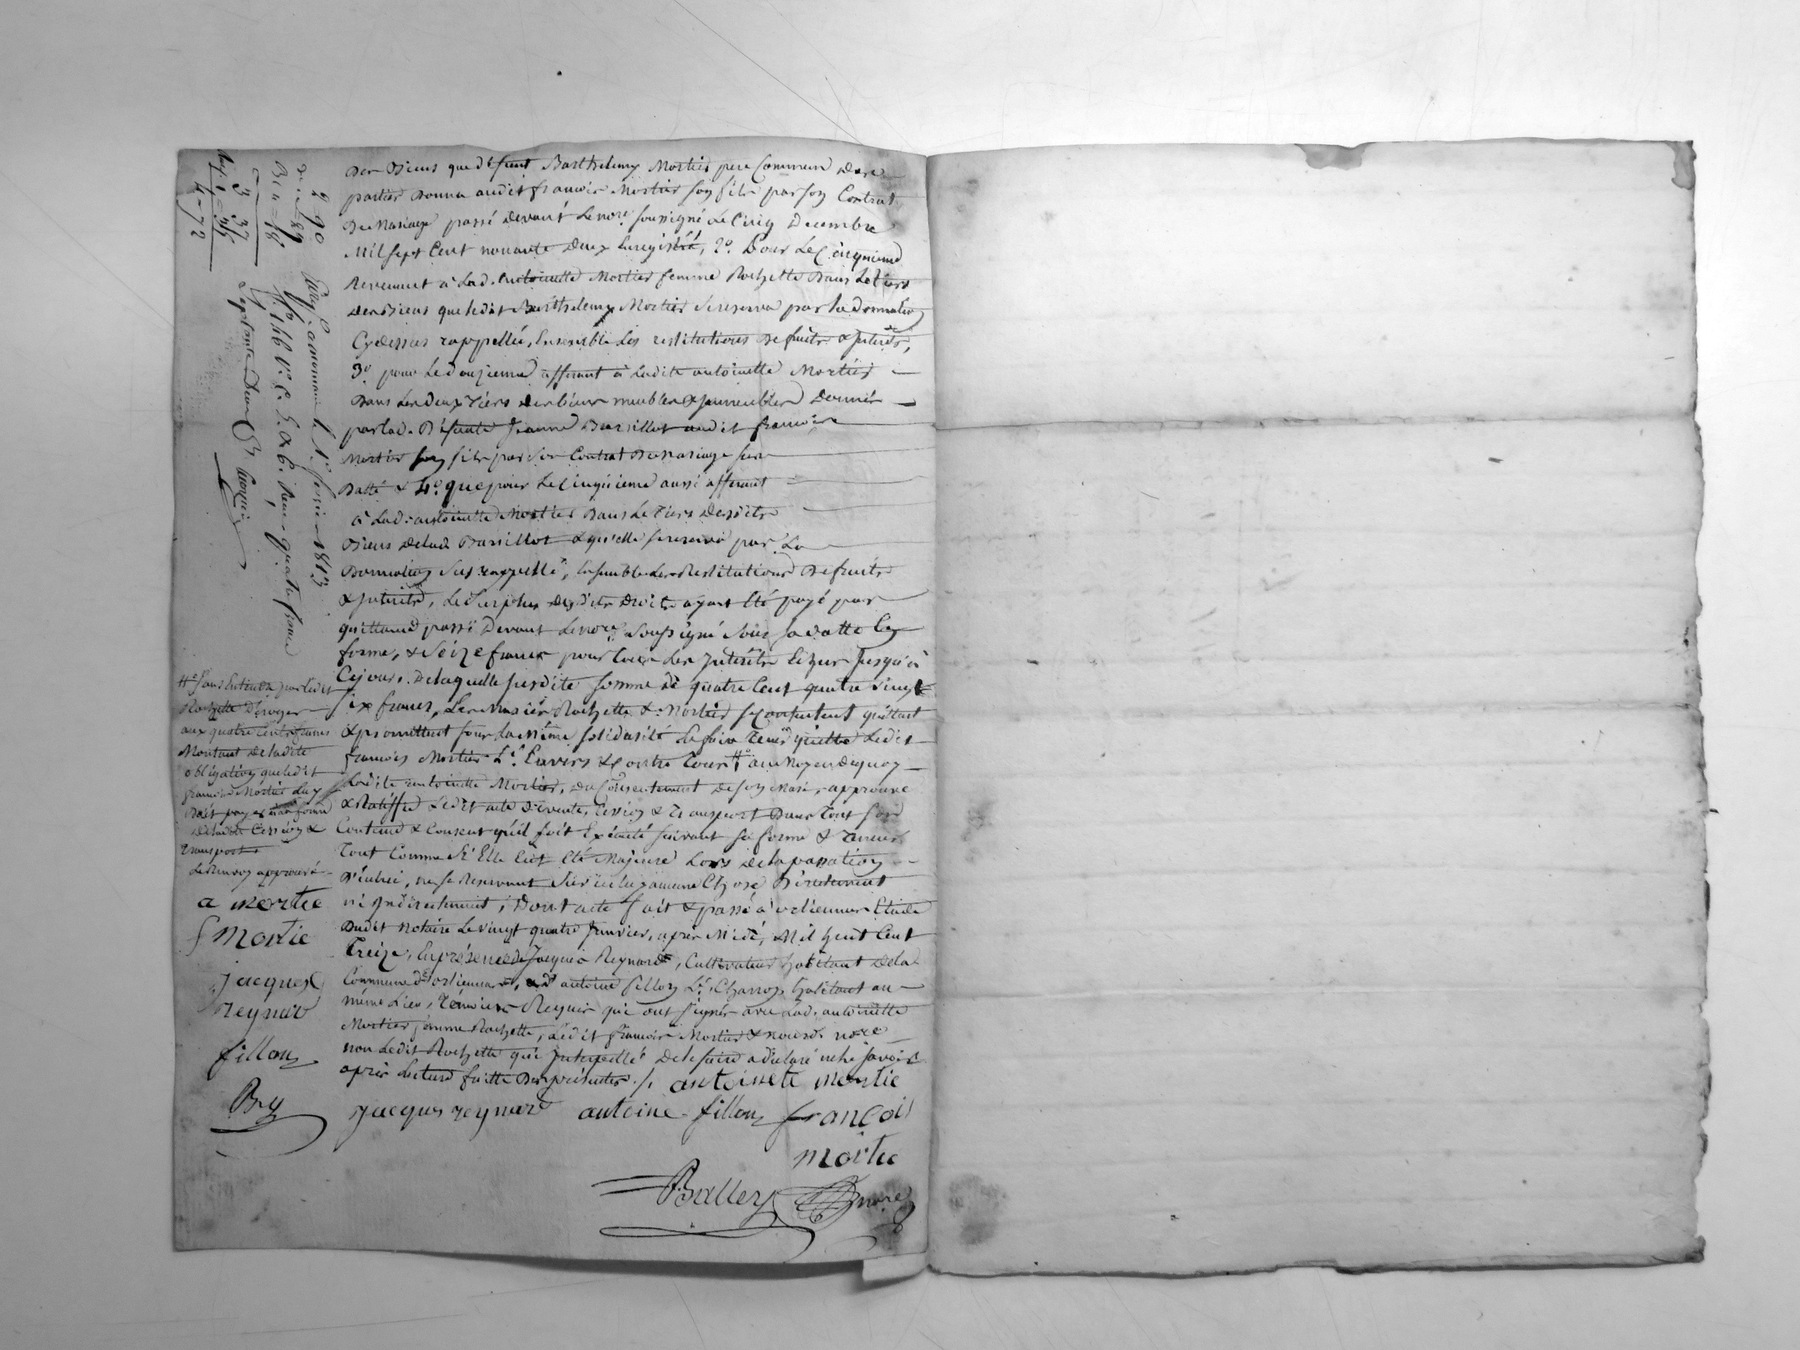 Des Biens que deffunt Barthelemy Mortier pere Commun des
parties Donna audit francois Mortier son fils par son Contrat
De Mariage passé devant le nore soussigné le Cinq Decembre
Mil sept Cent nonante deux Enregistré, 2o. Pour le Cinquieme
Revenant à lad. antoinette Mortier femme Rochette Dans le tiers
des Biens que ledit Barthelemy Mortier se reserva par la donnation
Cy dessus rappellée, Ensemble les restitutions de fruits & jnterets,
3o. pour le douzieme afferant à ladite antoinette Mortier
Dans les deux Tiers des biens meubles & jmmeubles Donnés
par lad. Defunte Jeanne Barsillot audit francois
Mortier son fils par son Contrat De Mariage sus
Datté & 4o. que pour le Cinquieme aussi afferant
à lad. antoinette Mortier Dans le Tiers Desdits
Biens de lad. Barsillot & qu'elle se reserva par la
Donnation sus rappellée, Ensemble les Restitutions De fruits
& jnterets, le Surplus desdits droits ayant Eté payé par
quittance passé Devant le nore Soussigné Sous sa datte En
forme, & Seize francs pour tous les jnterêts Echus jusqu'à
Ce jour. De laquelle susdite somme de quatre Cent quatre vingt
six francs, les Mariés Rochette & Mortier se contentent quittant
& promettent sous la même solidarité de faire tenir quitte ledit
francois Mortier Envers & Contre tous # au Moyen dequoy
ladite antoinette Mortier, du Consentement de son Mari, approuve
& Ratiffie ledit acte De vente, Cession & Transport Dans tout son
Contenu & Consent qu'il soit Exécuté suivant sa forme & teneur
Tout Comme Si Elle Eut Eté Majeure Lors de la passation
D'icelui, ne se Reservant Sur icelui aucune Chose Directement
ni jndirectement, Dont acte fait & passé à Etude
Dudit Notaire Le vingt quatre Janvier, après Midi, Mil huit Cent
Treize, En présence de Jacques Reynard, Cultivateur habitant de la
Commune & antoine fillon Charron habitant au
même Lieu, Témoins Requis qui ont signés avec lad. antoinette
Mortier femme Rochette, ledit francois Mortier & nousd. nore
non ledit Rochette qui jnterpellé de le faire a déclaré ne le savoir
après lecture faitte des présentes ./. antoinete mortie
jacques reynard antoine fillon françoi
mortie
Ballery nore
# Sans Entendre par ledit
Rochette Deroger
aux quatre Cents francs
Montant de ladite
obligation que ledit
francois Mortier luy
Doit
de ladite Cession &
transport
Le Renvoy approuvé
a mortie
f mortie
jacques
reynard
fillon
By
2 90
3 37
4-72
1813